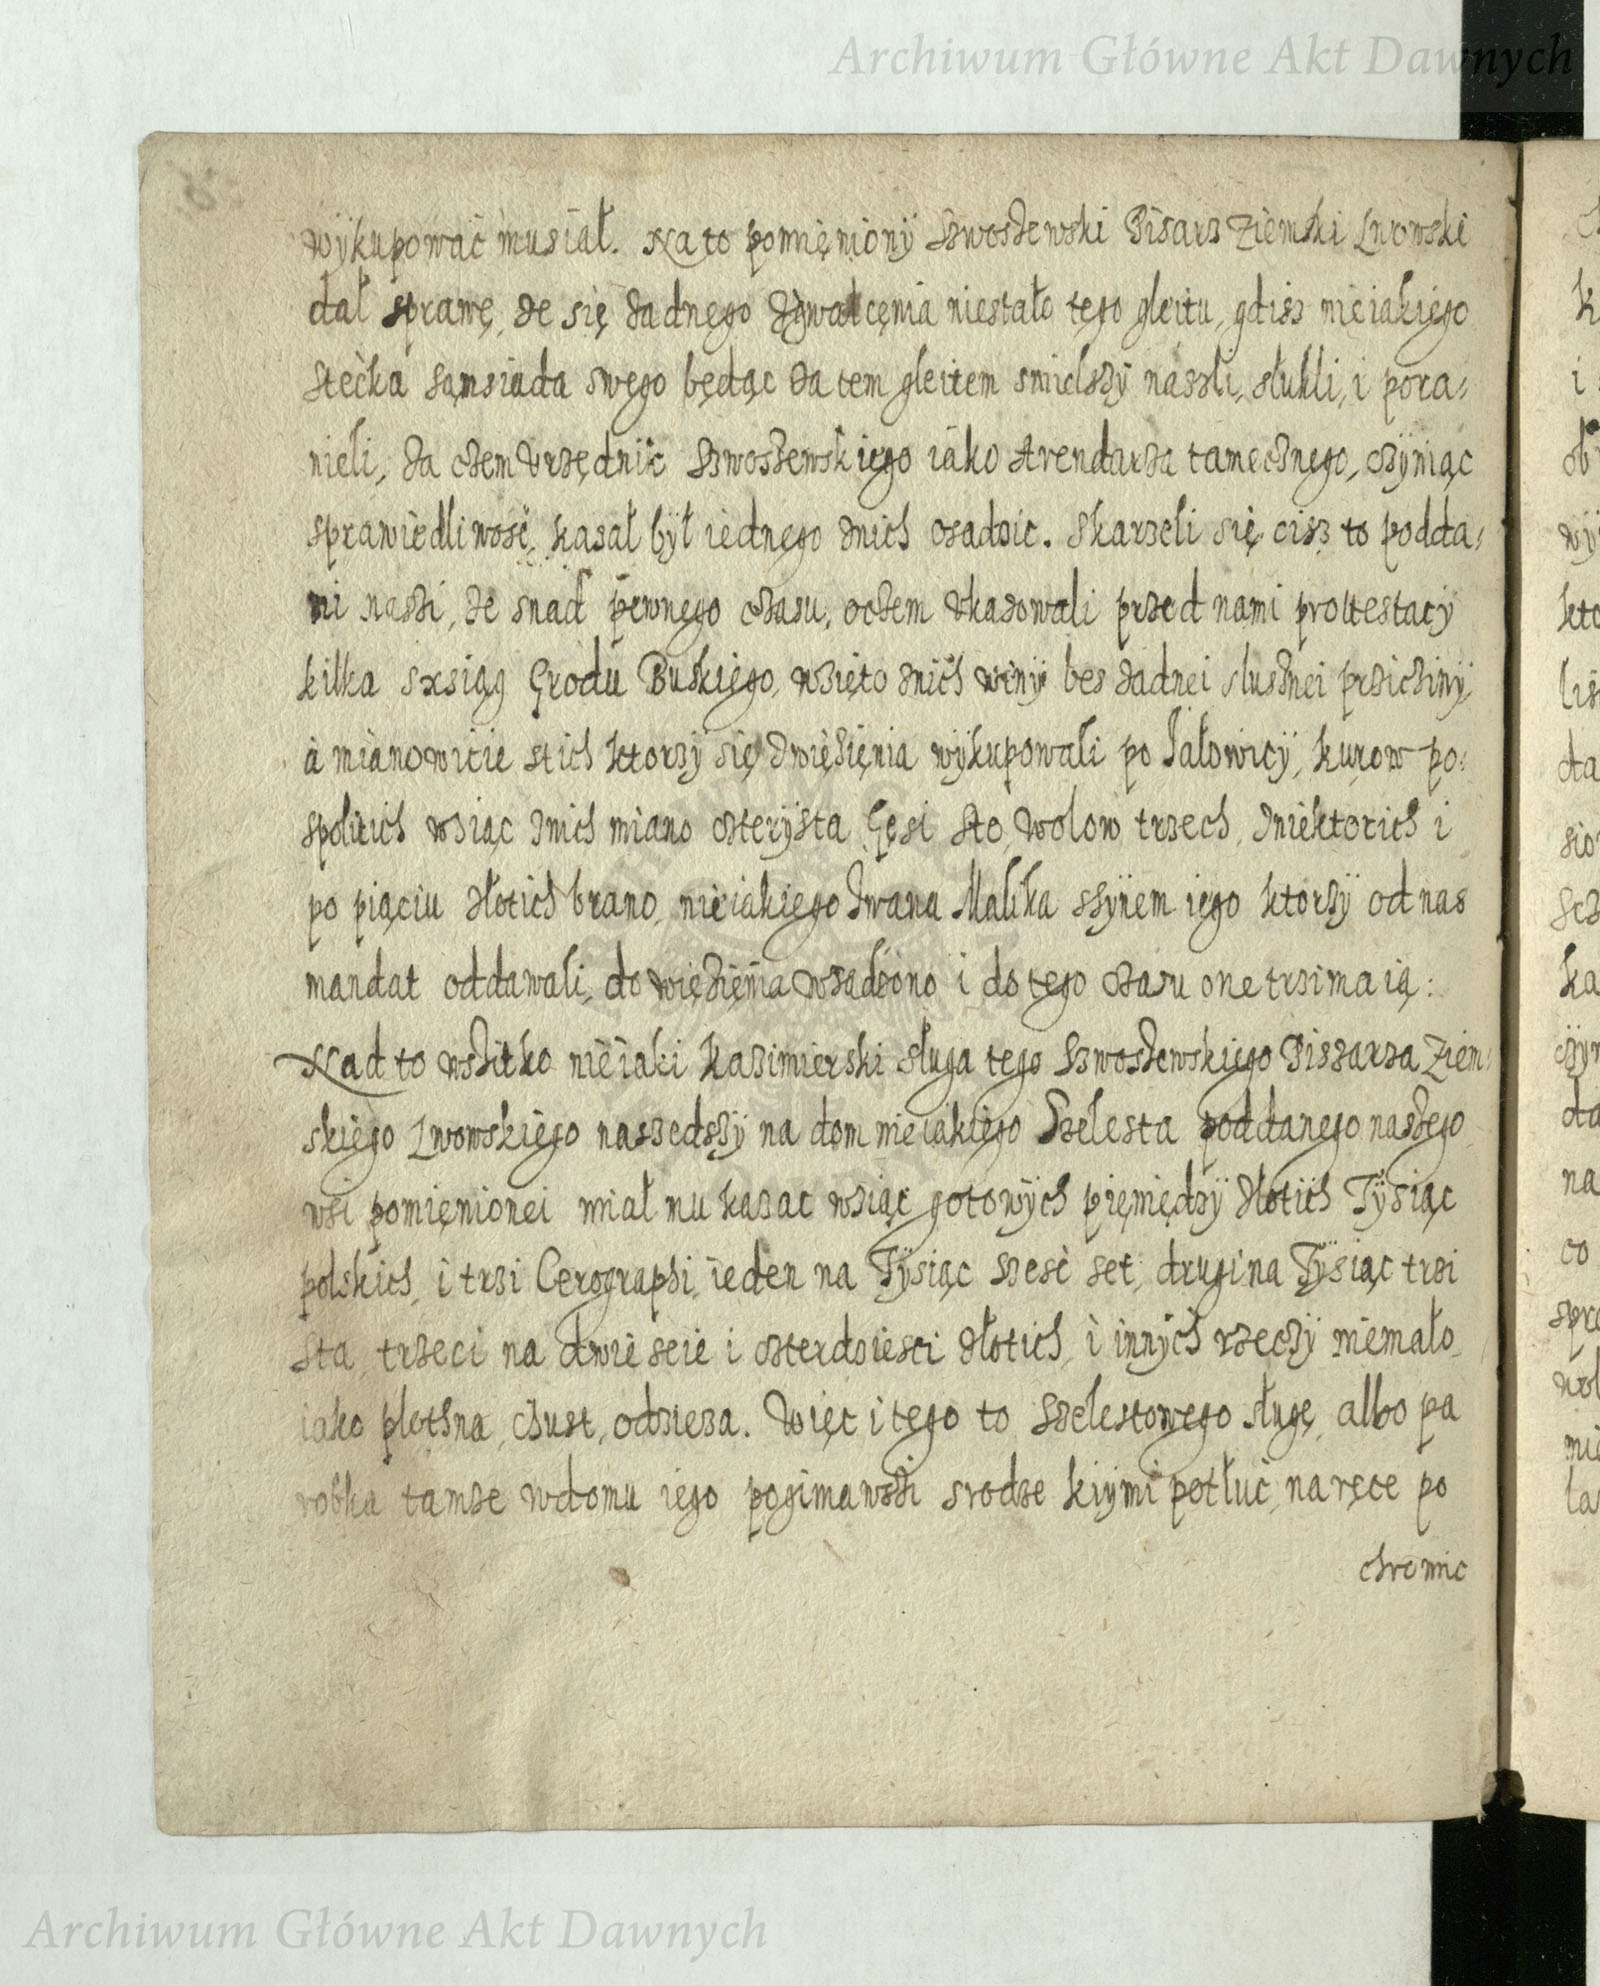 Archiwum Główne Akt Dawnych
wÿkupowac musiał. Na to pomięnionÿ Szwoszewski Pisarz Ziemski Lwowski
dał sprawę, ze się zadnęgo zgwałcęnia niestało tęgo gleitu, gdisz nieiakięgo
Stecka sąmsiada swęgo będąc za tem gleitem smielszÿ naszli, stukli, i pora,
nieli, za czem Vrzędnik Szwoszewskięgo iako Arendarza tamecznęgo, czÿniąc
sprawiedliwosc, kazał bÿł iednęgo znich osadzic. Skarzeli się cisz to podda,
ni naszi, ze snad pewnęgo czasu, oczem Vkazowali przed nami protestacÿ
kilka sxsiąg Grodu Buskięgo, wzięto znich winÿ bez zadnei slusznei prziczinÿ,
à mianowicie stich ktorzÿ się zwięzięnia wÿkupowali po Jałowicÿ, kurow po,
spolitich wziąc znich miano czterÿsta Gęsi sto, wolow trzech, zniektorich i
po piąciu złotich brano, nieiakięgo Iwana Malika szÿnem ięgo ktorzÿ od nas
mandat oddawali, do więzięnia wsadzono i do tęgo czasu one trzimaią:
Nad to wszitko nieiaki Kazimierski sługa tęgo Szwoszewskięgo Piszarza Ziem,
skięgo Lwowskięgo naszedszÿ na dom nieiakięgo Szelesta poddanęgo naszęgo
wsi pomięnionei miał mu kazac wziąc gotowÿch pięniędzÿ złotich Tÿsiąc
polskich, i trzi Cerographi, ieden na Tÿsiąc szesc set, drugi na Tÿsiąc trzi
sta, trzeci na dwiescie i czterdziesci złotich, i innÿch rzeczÿ niemało,
iako plothna, chust, odzieza. Więc i tęgo to Szelestowego sługę, albo pa
robka tamze wdomu ięgo pogimawszi srodze kiÿmi potłuc, na ręce po
chromic
Archiwum Główne Akt Dawnych